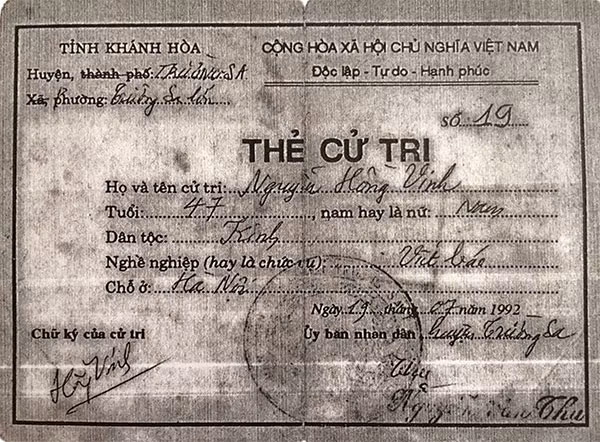 TỈNH KHÁNH HÒA
CỘNG HÒA XÃ HỘI CHỦ NGHĨA VIỆT NAM
Huyện, thành phố: TRƯỜNG SA
Độc lập - Tự do - Hạnh phúc
Xã, phường: Trường Sa lớn
số 19
THẺ CỬ TRI
Họ và tên cử tri: Nguyễn Hồng Vinh
Tuổi: 47, nam hay là nữ: Nam
Dân tộc: Kinh
Nghề nghiệp (hay là chức vụ): Viết báo
Chỗ ở: Hà Nội
Ngày 19 tháng 07 năm 1992
Chữ ký của cử tri
Ủy ban nhân dân Huyện Trường Sa
Nguyễn Thu